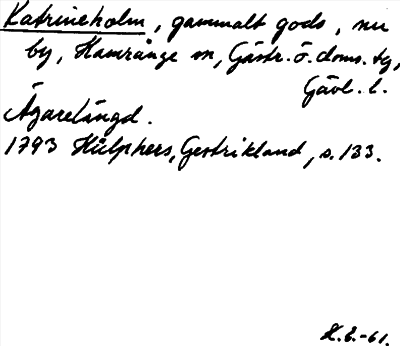 Katrineholm, gammalt gods, nu
by, Hamrånge sn, Gästr. ö. doms. tg,
Gävl. l.
Ägarelängd.
1793 Hülphers, Gestrikland, s. 133.
K.E.-61.